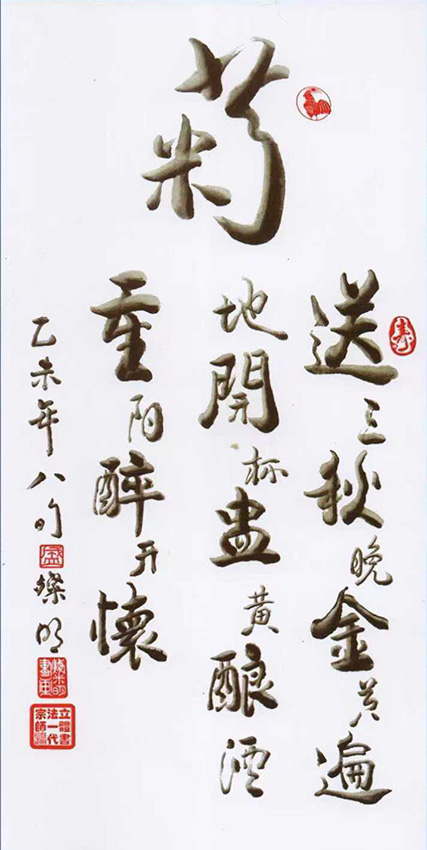 菊
送三秋晚金黄遍
地開杯盅黄酿酒
重阳醉开懷
乙未年八旬 燦明
立體書
法一代
宗師